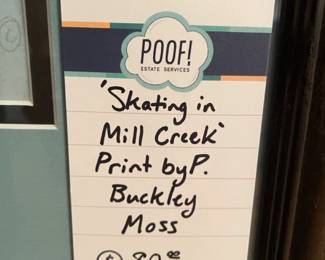 POOF!
ESTATE SERVICES
'Skating in
Mill Creek'
Print by P.
Buckley
Moss